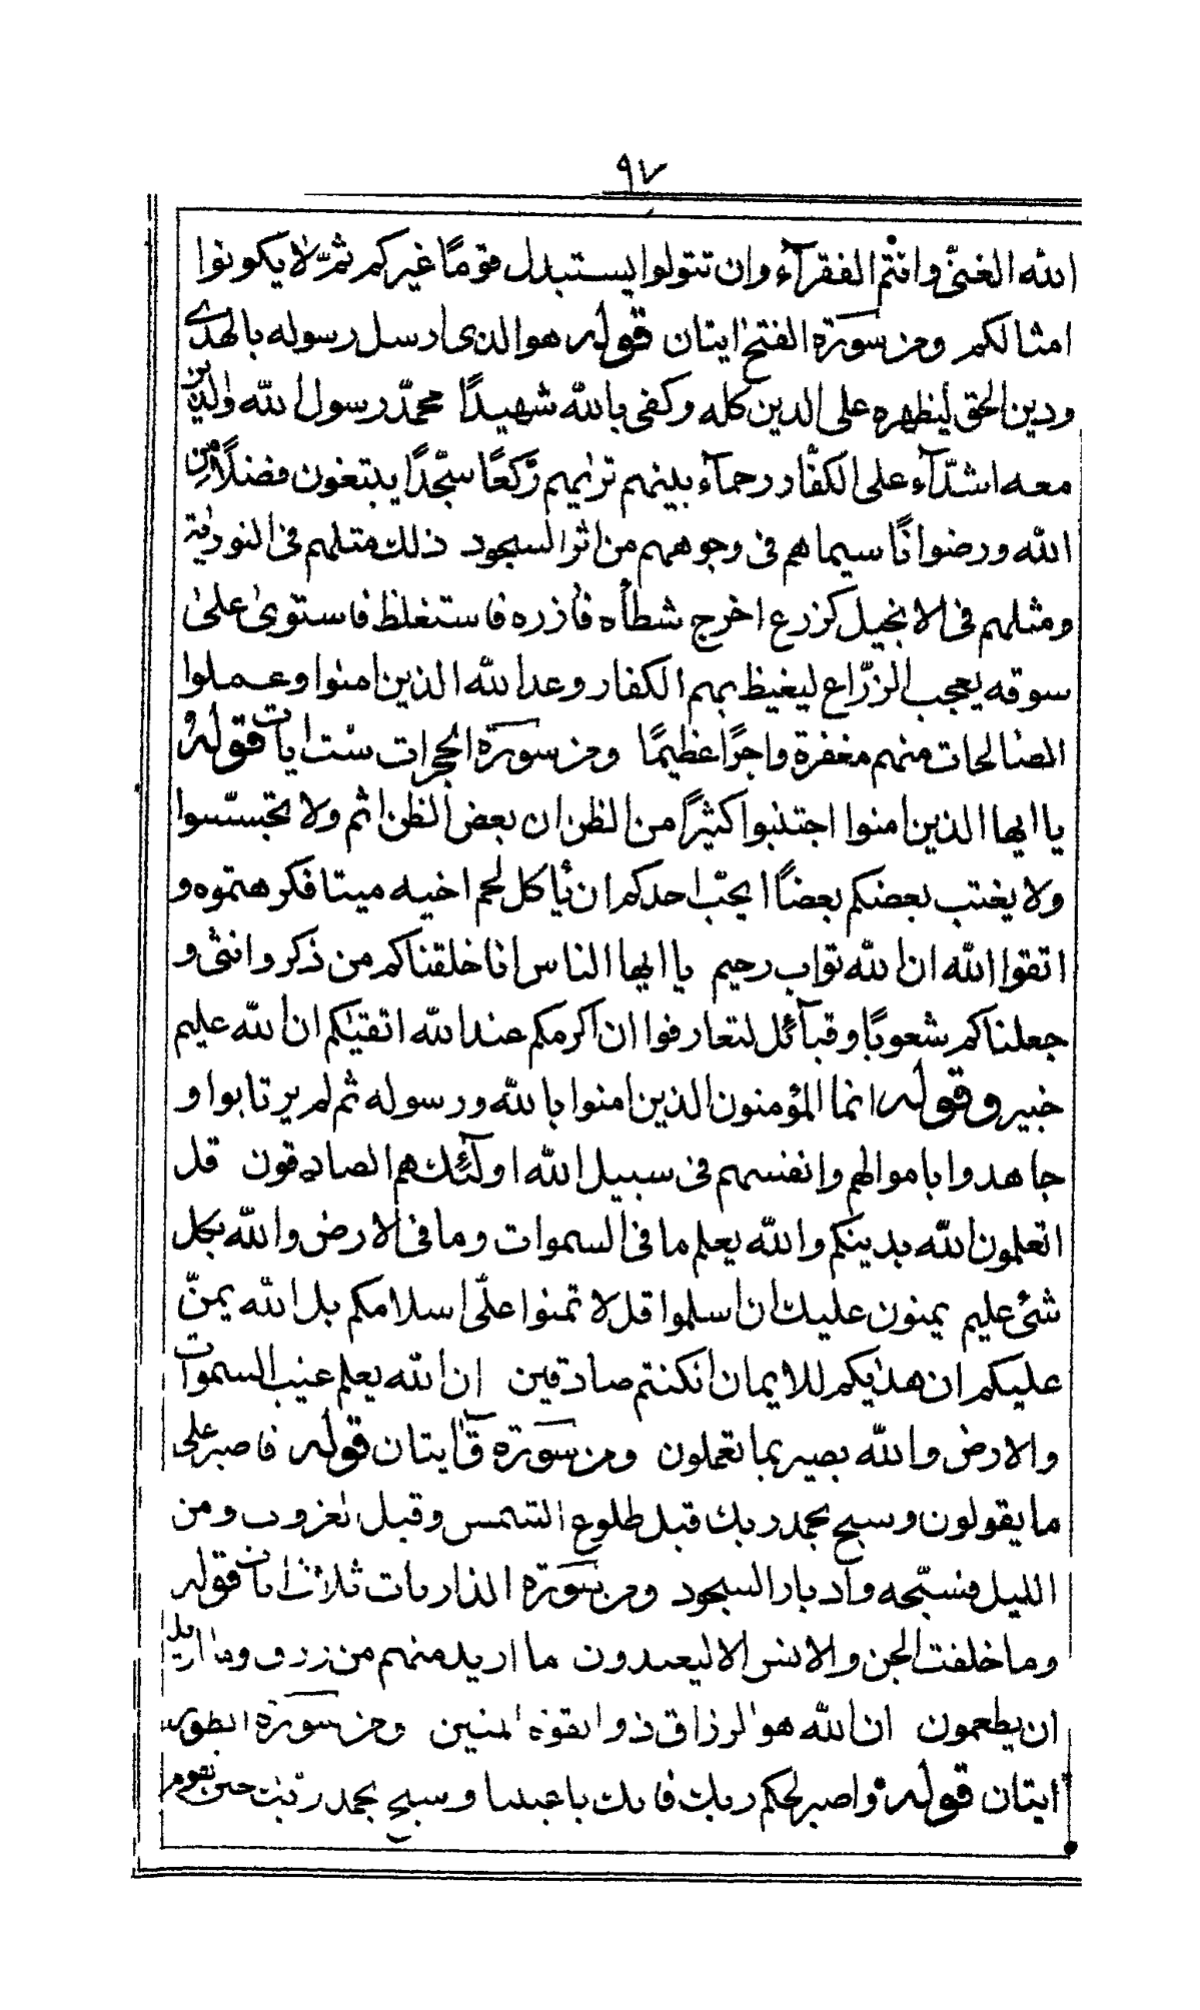 ٩٧
الله الغنىّ وانتم الفقرآء وان تتولوا يستبدل قومًا غيركم ثمّ لا يكونوا
امثالكم ومن سورة الفتح ايتان قوله هو الذى ارسل رسوله بالهدى
ودين الحق ليظهره على الدين كله وكفى بالله شهيدًا محمّد رسول الله والذين
معه اشدّآء على الكفّار رحمآء بينهم تريٰهم ركّعًا سجّدًا يبتغون فضلًا من
الله ورضوانًا سيماهم فى وجوههم من اثر السجود ذلك مثلهم فى التورٰية
ومثلهم فى الانجيل كزرع اخرج شطأه فأزره فاستغلظ فاستوىٰ علىٰ
سوقه يعجب الزرّاع ليغيظ بهم الكفار وعد الله الذين امنوا وعملوا
الصالحات منهم مغفرة واجرًا عظيمًا ومن سورة الحجرات ستّ ايات قوله
يا ايها الذين امنوا اجتنبوا كثيرًا من الظن ان بعض الظن اثم ولا تجسّسوا
ولا يغتب بعضكم بعضًا ايحبّ احدكم ان يأكل لحم اخيه ميتا فكرهتموه و
اتقوا الله ان الله تواب رحيم يا ايها الناس انا خلقناكم من ذكر وانثى و
جعلناكم شعوبًا وقبآئل لتعارفوا ان اكرمكم عند الله اتقيٰكم ان الله عليم
خبير وقوله انما المؤمنون الذين امنوا بالله ورسوله ثم لم يرتابوا و
جاهدوا باموالهم وانفسهم فى سبيل الله اولٓئك هم الصادقون قل
اتعلمون الله بدينكم والله يعلم ما فى السموات وما فى الارض والله بكل
شئ عليم يمنون عليك ان اسلموا قل لا تمنوا علىّ اسلامكم بل الله يمنّ
عليكم ان هديٰكم للايمان ان كنتم صادقين ان الله يعلم غيب السموات
والارض والله بصير بما تعملون ومن سورة قٓ ايتان قوله فاصبر على
ما يقولون وسبح بحمد ربك قبل طلوع الشمس وقبل الغروب ومن
الليل فسبّحه وادبار السجود ومن سورة الذاريات ثلاث ايات قوله
وما خلقت الجن والانس الا ليعبدون ما اريد منهم من رزق وما اريد
ان يطعمون ان الله هو الرزاق ذو القوة المتين ومن سورة الطور
ايتان قوله واصبر لحكم ربك فانك باعيننا وسبح بحمد ربّك حين تقوم